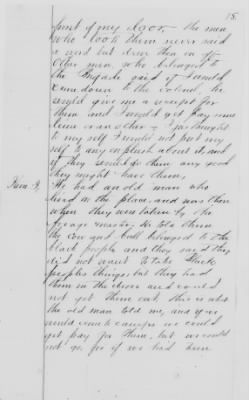 18.
front of my door, the men
who took them never said
a word but drove them in off
Other men, who belonged to
the Brigade said if I would
come down to the Colonel, he
would give me a receipt for
them and I would get pay some
time or another - I just thought
to myself I would not put my
self to any about it, and
if they would do them any good
they might have them.
We had an old man who
lived on the place, and was there
when they were taken by the
forage master. He told them
the cow and bull belonged to the
black people and they said they
did not want to take black
peoples things, but they had
them in the drove and could
not get them out, this is what
the old man told me, and if we
would come to camp we could
get pay for them, but we could
not go, for if we had been